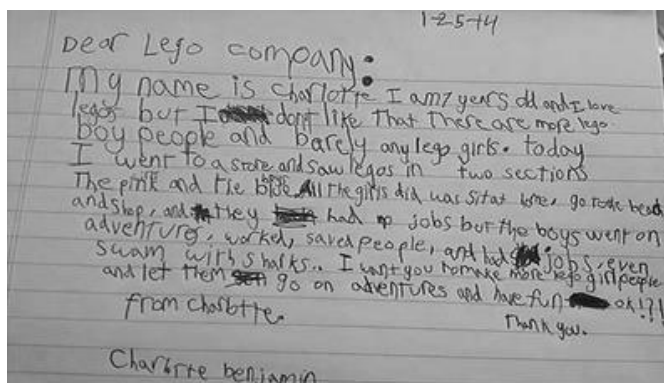 1-25-14
Dear Lego company:
My name is Charlotte I am 7 years old and I love
legos but I don't like that there are more lego
boy people and barely any lego girls. today
I went to a store and saw legos in two sections
The pink and the blue. All the girls did was sit at home, go to the beach
and shop, and they had no jobs but the boys went on
adventures, worked, saved people, and had jobs, even
swam with sharks.. I want you to make more lego girl people
and let them go on adventures and have fun ok!?!
from Charlotte. Thank you.
Charlotte benjamin